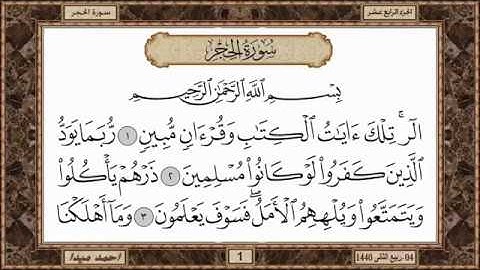 سورة الحجر
الجزء الرابع عشر
سُورَةُ الحِجْرِ
بِسْمِ اللَّهِ الرَّحْمَٰنِ الرَّحِيمِ
الٓر ۚ تِلْكَ ءَايَٰتُ ٱلْكِتَٰبِ وَقُرْءَانٍ مُّبِينٍ ١ رُّبَمَا يَوَدُّ
ٱلَّذِينَ كَفَرُوا۟ لَوْ كَانُوا۟ مُسْلِمِينَ ٢ ذَرْهُمْ يَأْكُلُوا۟
وَيَتَمَتَّعُوا۟ وَيُلْهِهِمُ ٱلْأَمَلُ ۖ فَسَوْفَ يَعْلَمُونَ ٣ وَمَآ أَهْلَكْنَا
احمد ميدا
1
04- ربيع الثانى 1440